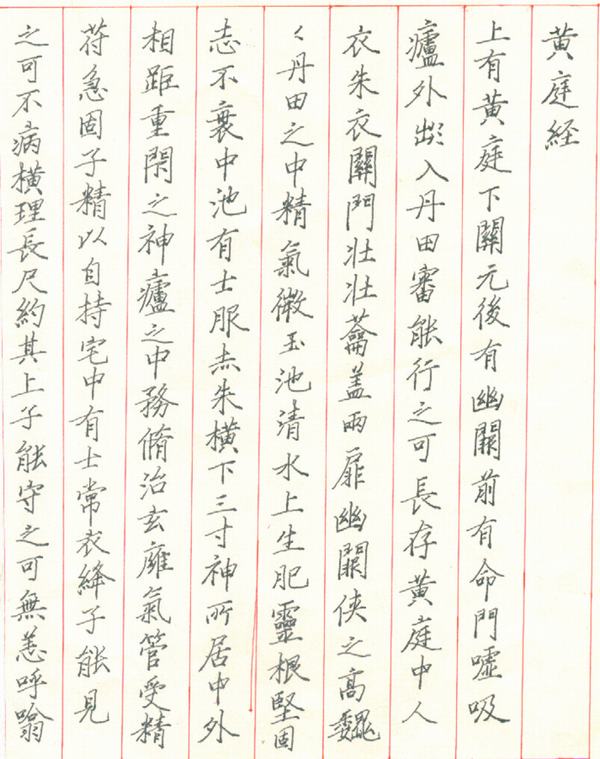 黄庭經
上有黄庭下關元後有幽關前有命門嘘吸
廬外出入丹田審能行之可長存黄庭中人
衣朱衣關門壯籥盖兩扉幽關侠之高魏
丹田之中精氣微玉池清水上生肥靈根堅固
志不衰中池有士服赤朱横下三寸神所居中外
相距重閇之神廬之中務脩治玄廱氣管受精
苻急固子精以自持宅中有士常衣絳子能見
之可不病横理長尺約其上子能守之可無恙呼噏